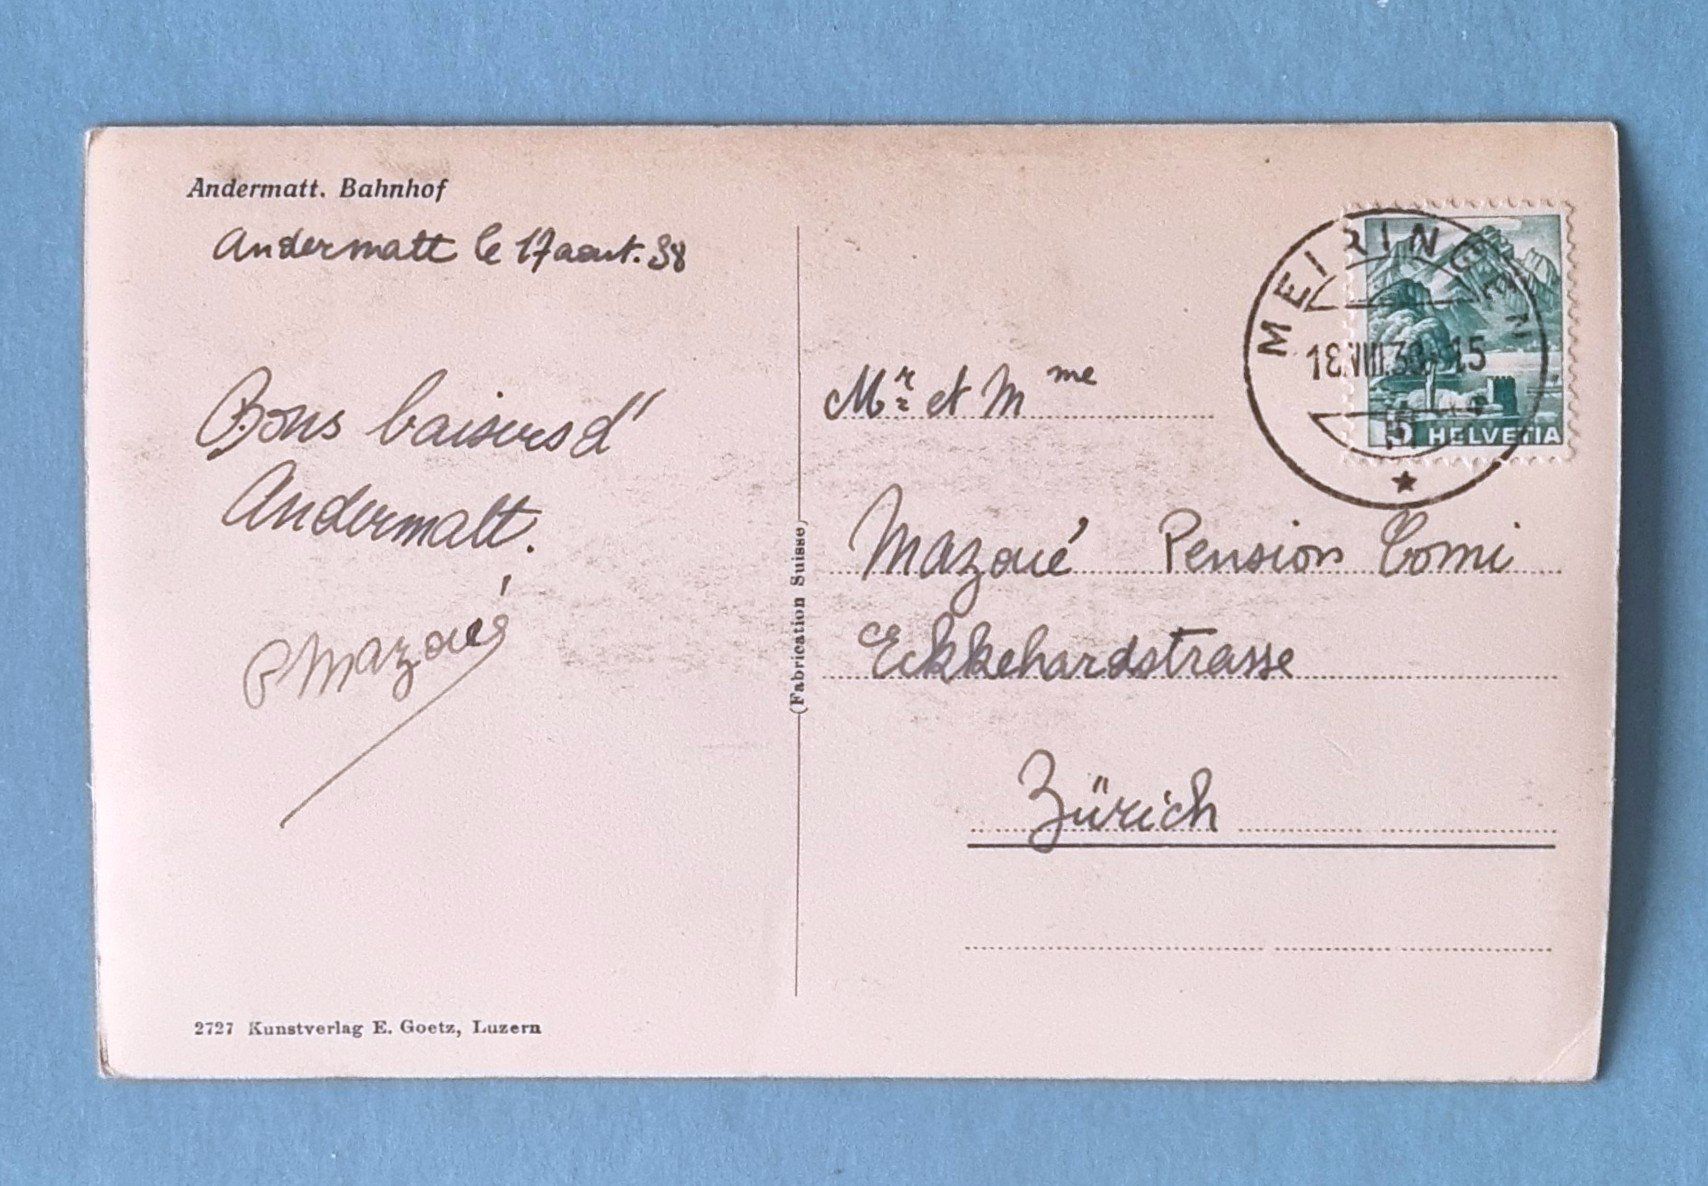 Andermatt. Bahnhof
Andermatt le 17 aout. 38
Bons baisers d'
Andermatt.
P Mazoué
2727 Kunstverlag E. Goetz, Luzern
(Fabrication Suisse)
MEIRINGEN
18.VIII.38 15
5 HELVETIA
Mr et Mme
Mazoué Pension Comi
Eckkehardstrasse
Zürich